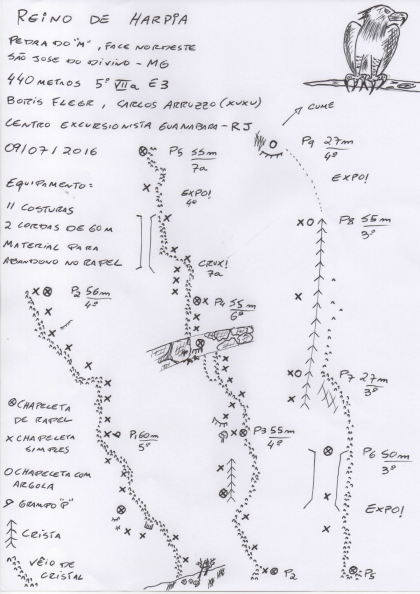 REINO DE HARPIA
PEDRA DO "M", FACE NORDESTE
SÃO JOSE DO DIVINO - MG
440 METROS 5° VIIa E3
BORIS FLEGR, CARLOS ARRUZZO (XUXU)
CENTRO EXCURSIONISTA GUANABARA - RJ
09/07/2016
CUME
P9 27m
4°
EXPO!
P5 55m
7a
EXPO!
4°
EQUIPAMENTO:
11 COSTURAS
2 CORDAS DE 60m
MATERIAL PARA
ABANDONO NO RAPEL
P8 55m
3°
CRUX!
7a
P2 56m
4°
P4 55m
6°
P7 27m
3°
CHAPELETA
DE RAPEL
CHAPELETA
SIMPLES
CHAPELETA COM
ARGOLA
GRAMPO "P"
CRISTA
VEIO DE
CRISTAL
P1 60m
5°
P3 55m
4°
P6 50m
3°
EXPO!
P2
P5